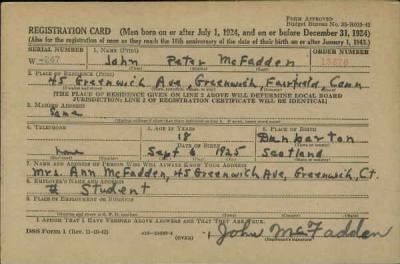 FORM APPROVED
REGISTRATION CARD—(Men born on or after July 1, 1924, and on or before December 31, 1924)
(Also for the registration of men as they reach the 18th anniversary of the date of their birth on or after January 1, 1943.)
SERIAL NUMBER
1. NAME (Print)
ORDER NUMBER
W
John Peter McFadden
(First) (Middle) (Last)
2. PLACE OF RESIDENCE (Print)
45 Greenwich Ave, Greenwich Fairfield Conn
[THE PLACE OF RESIDENCE GIVEN ON LINE 2 ABOVE WILL DETERMINE LOCAL BOARD
JURISDICTION; LINE 2 OF REGISTRATION CERTIFICATE WILL BE IDENTICAL]
3. MAILING ADDRESS
Same
4. TELEPHONE
5. AGE IN YEARS
18
6. PLACE OF BIRTH
Dunbarton
DATE OF BIRTH
none
Sept 6 1925
Scotland
7. NAME AND ADDRESS OF PERSON WHO WILL ALWAYS KNOW YOUR ADDRESS
Mrs. Ann McFadden, 45 Greenwich Ave, Greenwich, Ct.
8. EMPLOYER'S NAME AND ADDRESS
Student
9. PLACE OF EMPLOYMENT OR BUSINESS
I AFFIRM THAT I HAVE VERIFIED ABOVE ANSWERS AND THAT THEY ARE TRUE.
DSS Form 1 (Rev. 11-16-42)
(OVER)
John McFadden
(Registrant's signature)